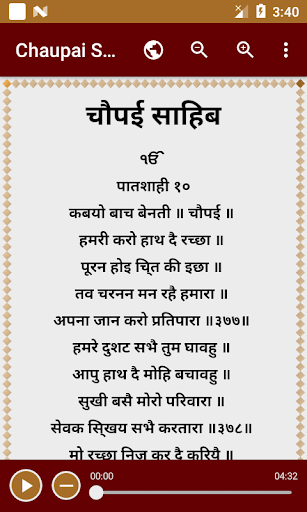 3:40
Chaupai S...
चौपई साहिब
ੴ
पातशाही १०
कबयो बाच बेनती ॥ चौपई ॥
हमरी करो हाथ दै रच्छा ॥
पूरन होइ चि्त की इछा ॥
तव चरनन मन रहै हमारा ॥
अपना जान करो प्रतिपारा ॥३७७॥
हमरे दुशट सभै तुम घावहु ॥
आपु हाथ दै मोहि बचावहु ॥
सुखी बसै मोरो परिवारा ॥
सेवक सि्खय सभै करतारा ॥३७८॥
मो रच्छा निज कर दै करियै ॥
00:00 04:32